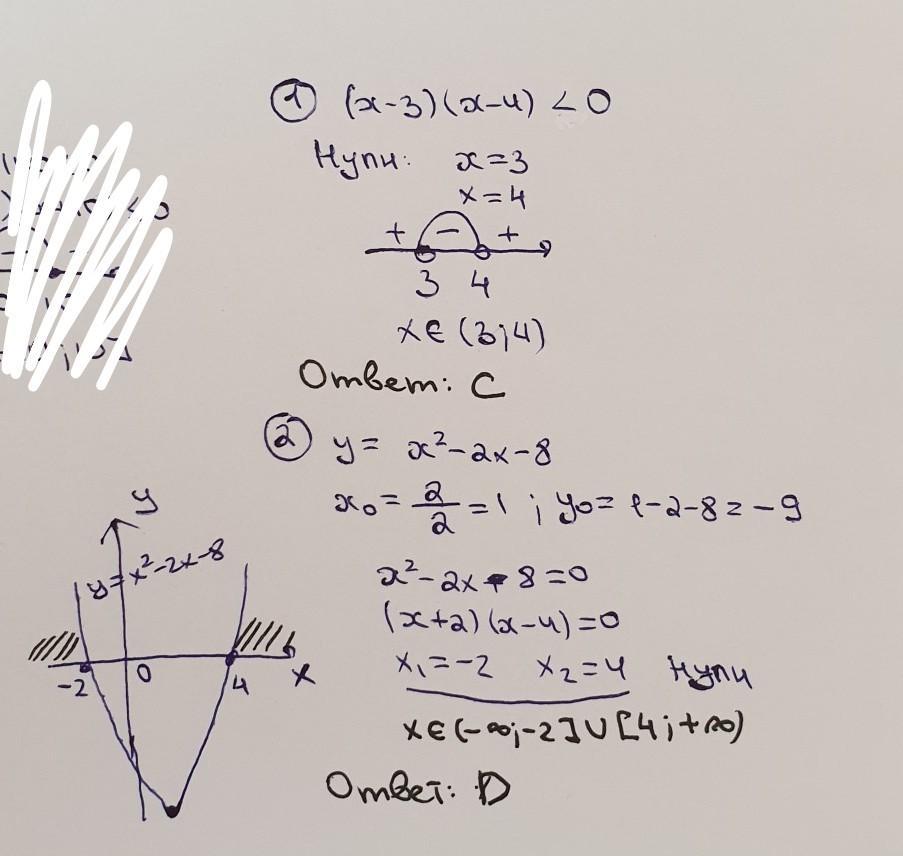 ① (x-3)(x-4) < 0
Нули: x=3
x=4
+ - +
3 4
x∈(3;4)
Ответ: C
② y = x²-2x-8
x₀ = 2/2 = 1 ; y₀ = 1-2-8 = -9
x²-2x-8=0
(x+2)(x-4)=0
x₁=-2 x₂=4 Нули
x∈(-∞;-2]∪[4;+∞)
Ответ: D
y
y=x²-2x-8
-2 0 4 x